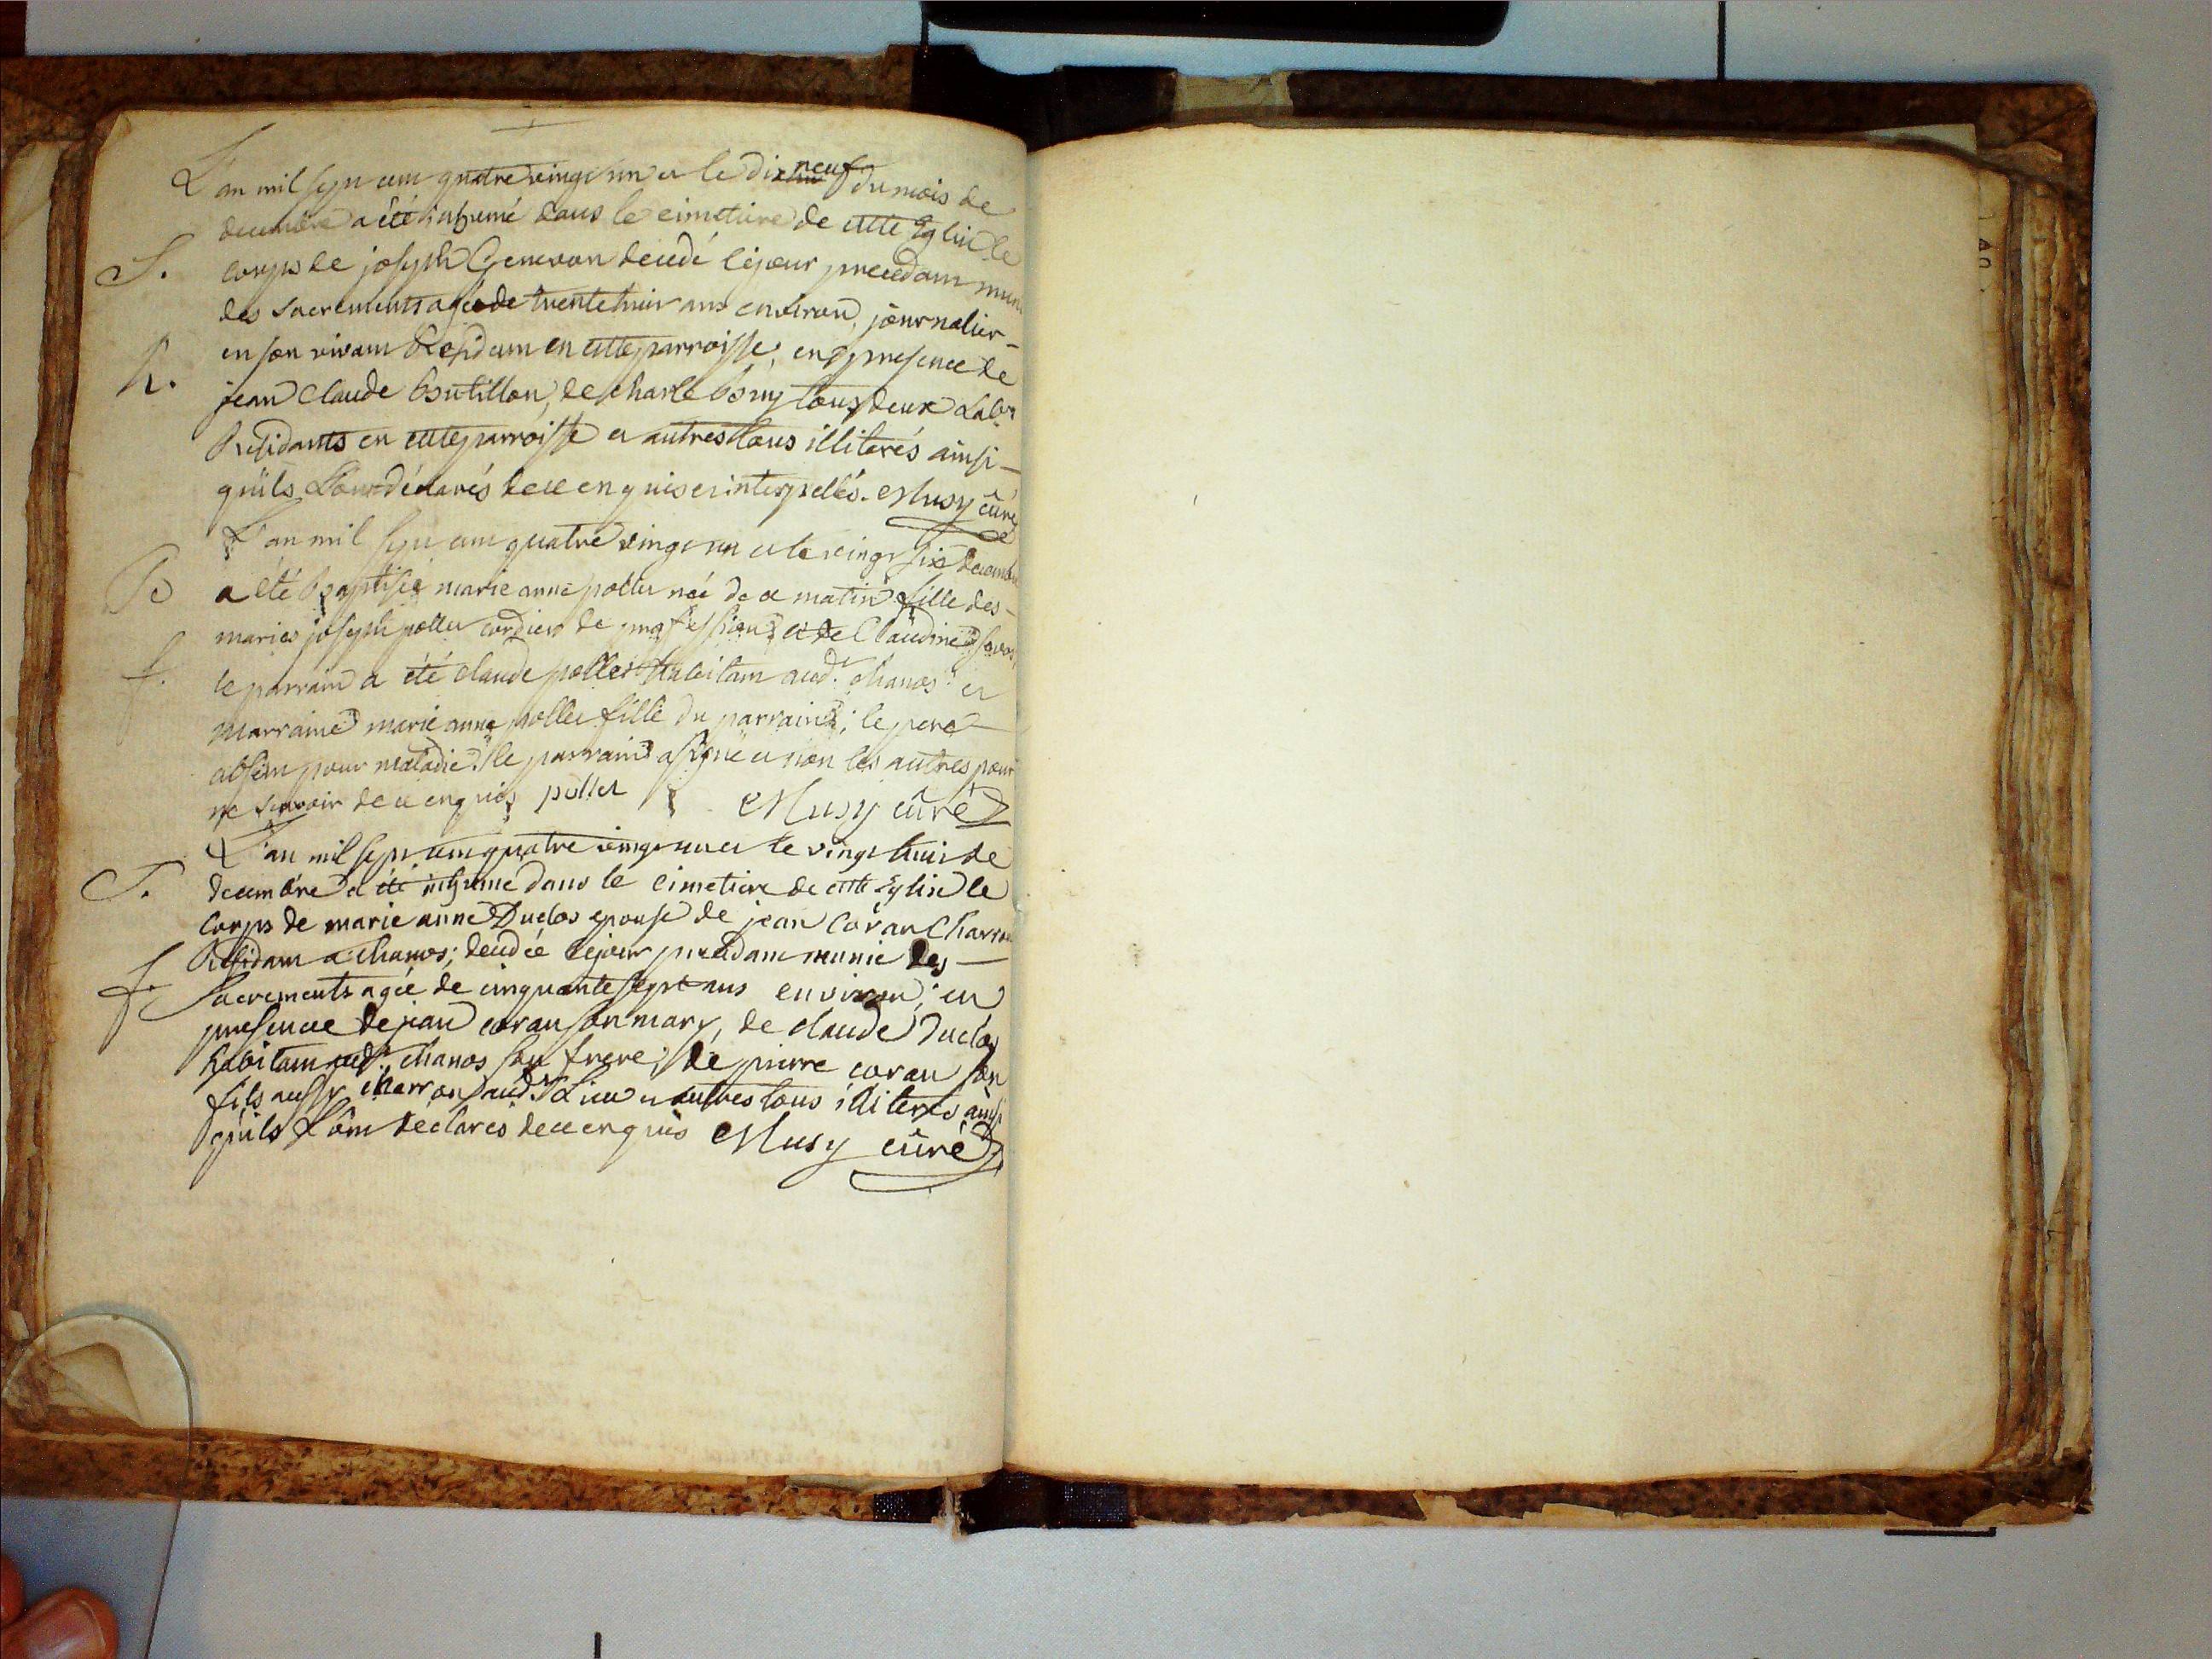 L'an mil sept cent quatre vingt un et le dix neuf du mois de
decembre a été inhumé dans le cimetiere de cette Eglise le
S. corps de joseph Genevon decedé le jour precedant muni
des sacrements agé de trente huit ans environ, journalier
h. en son vivant Residant en cette parroisse, en presence de
jean Claude Boutillon, de Charle tous deux Labrs
Residants en cette parroisse et autres tous illiterés ainsi
qu'ils L'ont déclarés de ce enquis et interpellés. Musy curé
L'an mil sept cent quatre vingt un et le vingt six decembre
B a été Baptisée marie anne pollet née de ce matin fille des
maries joseph pollet cordier de profession et de Claudine
f. le parrain a été claude pollet habitant audt chanos et
marraine marie anne pollet fille du parrain; le pere
absent pour maladie. le parrain a signé et non les autres pour
ne scavoir de ce enquis pollet Musy curé
L'an mil sept cent quatre vingt un et le vingt huit de
S. decembre a été inhumé dans le cimetiere de cette Eglise le
corps de marie anne Duclos epouse de jean Coran Charron
Residant a chanos; decedée le jour precedant munie des
f. Sacrements agée de cinquante sept ans environ; en
presence de jean coran son mary, de claude Duclos
habitant audt chanos son frere, de pierre coran son
fils aussy charron audt Lieu et autres tous illiterés ainsi
qu'ils L'ont déclarés de ce enquis Musy curé